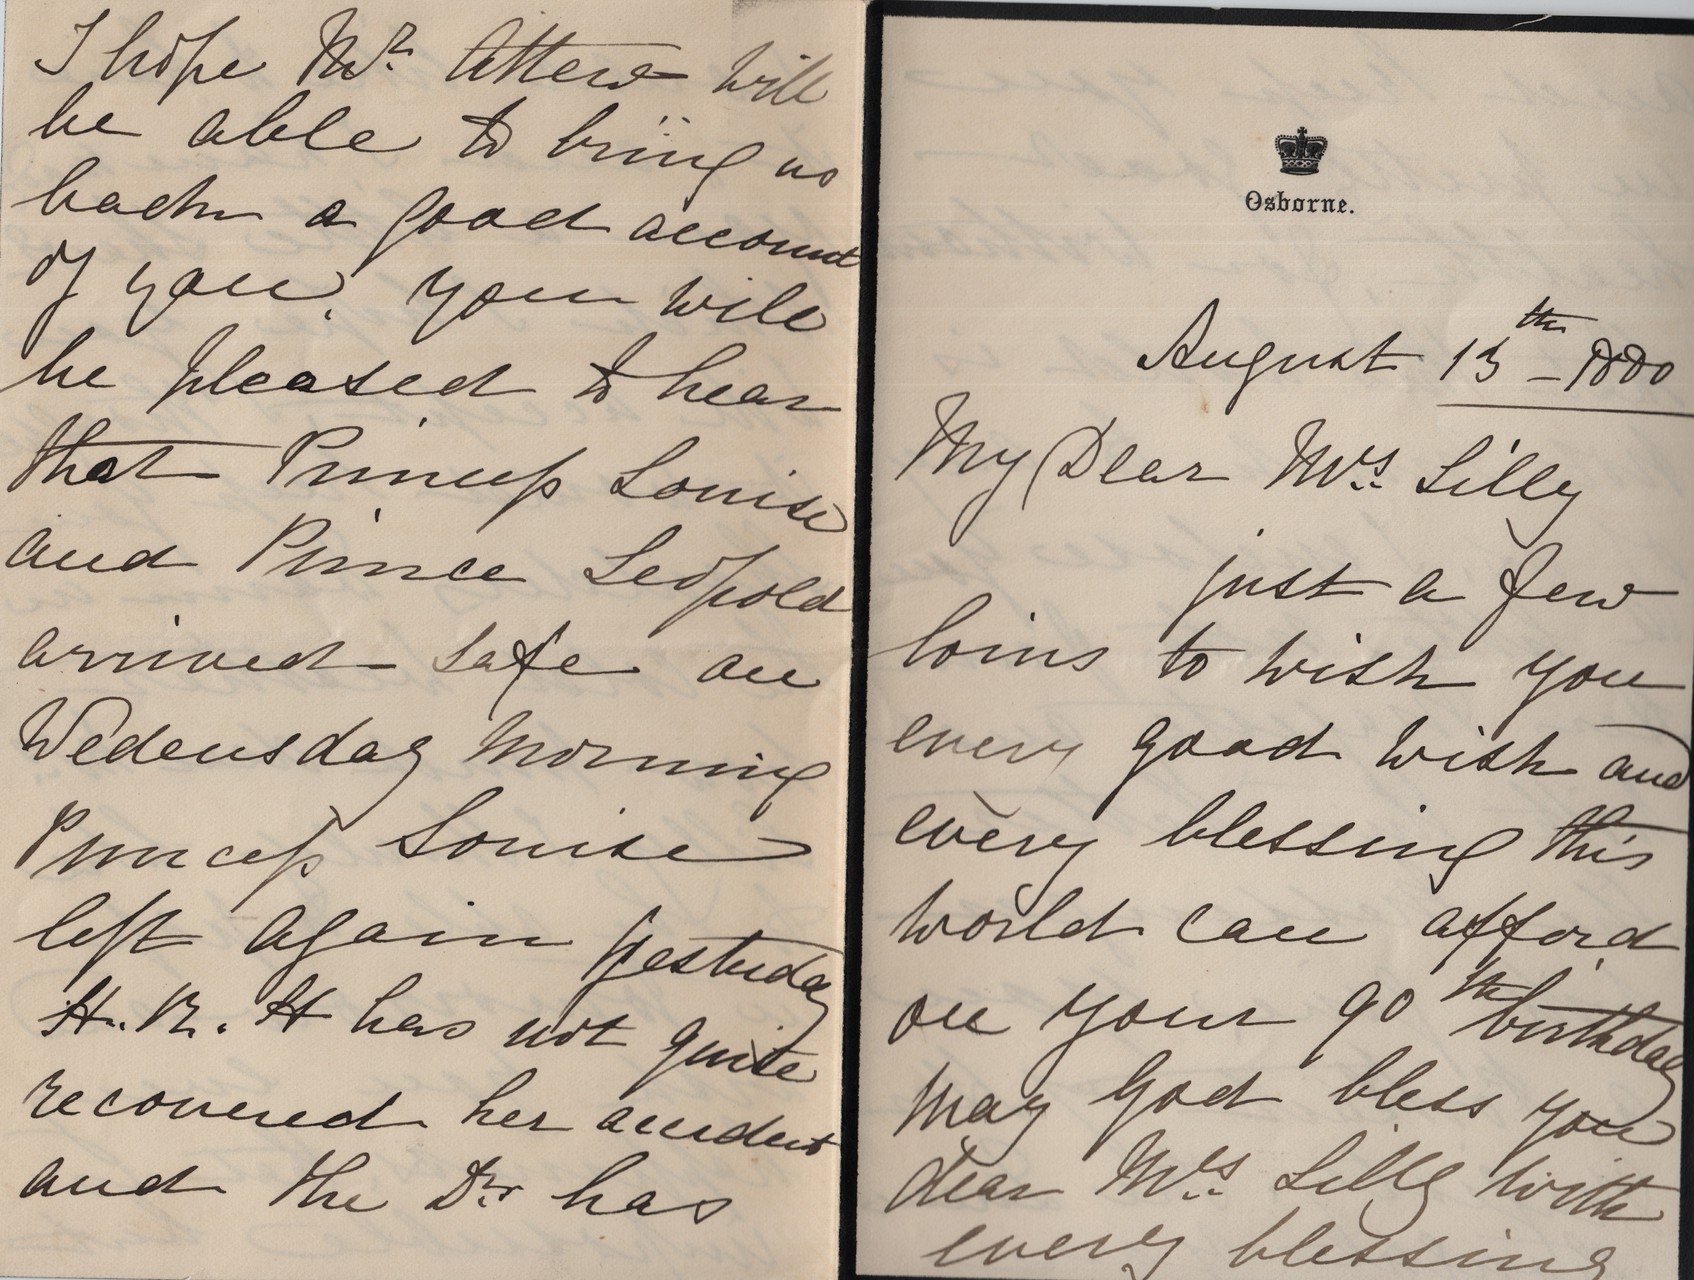 Osborne.
August 13th - 1880
My Dear Mrs Lilly
just a few
loins to wish you
every good wish and
every blessing this
world can afford
on your 90th birthday
May God bless you
dear Mrs Lilly with
every blessing
I hope Mr Atter will
be able to bring us
back a good account
of you, you will
be pleased to hear
that Princess Louise
and Prince Leopold
arrived safe on
Wedensday Morning
Princess Louise
left again yesterday
H. R. H has not quite
recovered her accident
and the Dr has